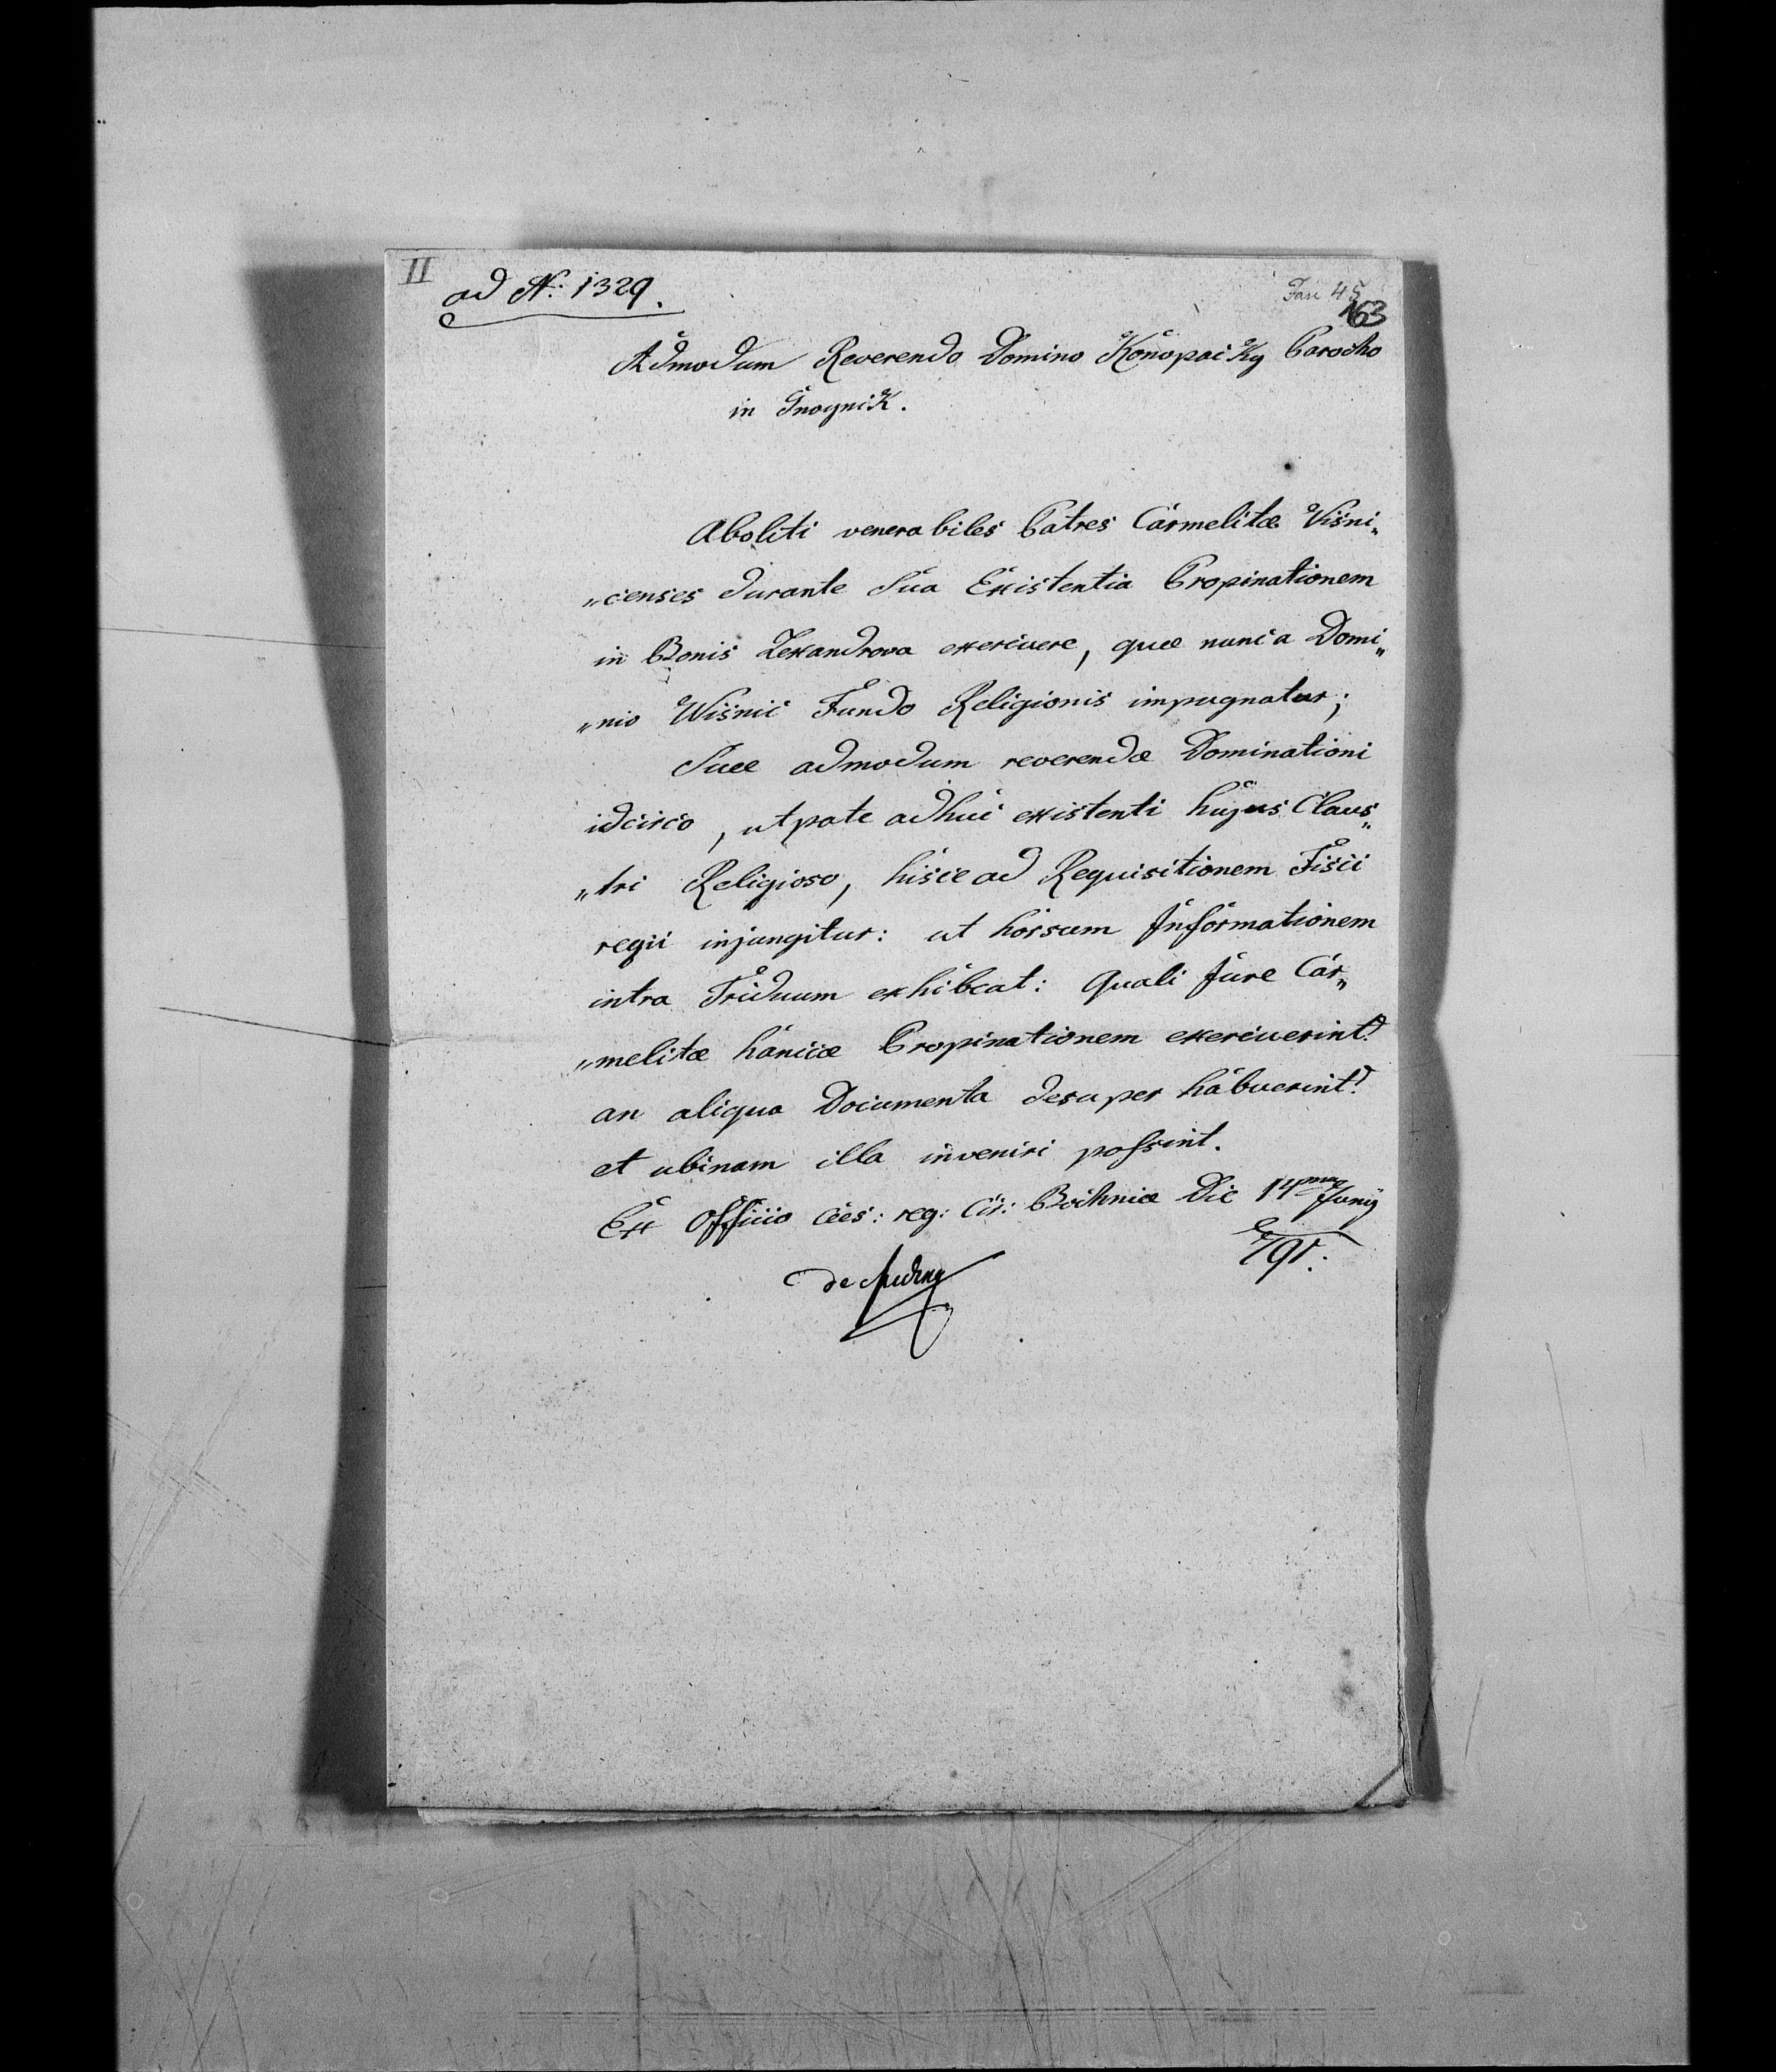 II
ad N: 1329.
Fasc 45
163
Admodum Reverendo Domino Konopacky Parocho
in Gnoynik.
Aboliti venerabiles Patres Carmelitæ Visni„
„censes durante Sua Existentia Propinationem
in Bonis Lexandrova exercuere, quæ nunc a Domi„
„nio Wisnic Fundo Religionis impugnatur;
Suæ admodum reverendæ Dominationi
idcirco, utpote adhuc existenti hujus Claus„
„tri Religioso, hisce ad Requisitionem Fisci
regii injungitur: ut horsum Informationem
intra Triduum exhibeat: Quali Jure Car„
„melitæ hancce Propinationem exercuerint?
an aliqua Documenta desuper habuerint?
et ubinam illa inveniri possint.
Ex Officio Cæs: reg: Cir: Bochniæ Die 14 Junij
791.
de